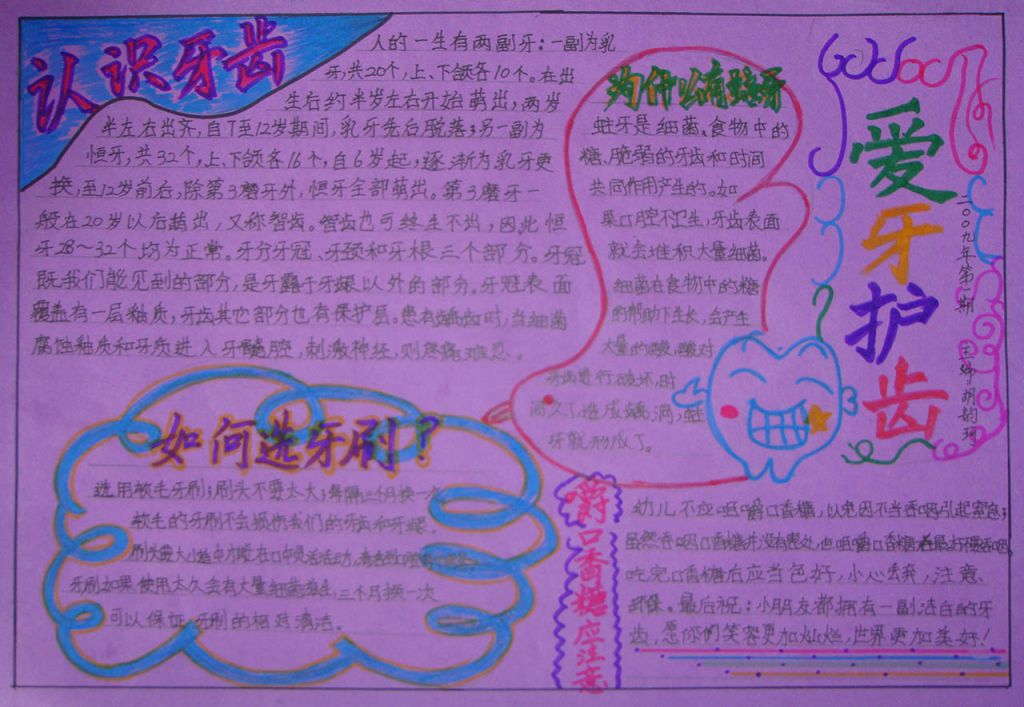 认识牙齿
人的一生有两副牙：一副为乳
牙，共20个，上、下颌各10个。在出
生后约半岁左右开始萌出，两岁
半左右出齐，自7至12岁期间，乳牙先后脱落；另一副为
恒牙，共32个，上、下颌各16个，自6岁起，逐渐为乳牙更
换，至12岁前后，除第3磨牙外，恒牙全部萌出。第3磨牙一
般在20岁以后萌出，又称智齿。智齿也可终生不出，因此恒
牙28～32个均为正常。牙分牙冠、牙颈和牙根三个部分。牙冠
既我们能见到的部分，是牙露于牙龈以外的部分。牙冠表面
覆盖有一层釉质，牙齿其它部分也有保护层。患有龋齿时，当细菌
腐蚀釉质和牙质进入牙髓腔，刺激神经，则疼痛难忍。
为什么有蛀牙
蛀牙是细菌、食物中的
糖、脆弱的牙齿和时间
共同作用产生的。如
果口腔不卫生，牙齿表面
就会堆积大量细菌。
细菌在食物中的糖
的帮助下生长，会产生
大量的酸，酸对
牙齿进行破坏，时
间久了造成龋洞，蛀
牙就形成了。
爱牙护齿
二00九年第一期 主编：胡韵珂
如何选牙刷？
选用软毛牙刷；刷头不要太大；每隔三个月换一次
软毛的牙刷不会损伤我们的牙齿和牙龈
刷头要大小适中才能在口中灵活活动，
牙刷如果使用太久会有大量细菌滋生，三个月换一次
可以保证牙刷的相对清洁。
嚼口香糖应注意
幼儿不应咀嚼口香糖，以免因不当吞咽引起窒息；
虽然吞咽口香糖并没有害处，但咀嚼口香糖者最好不要吞咽
吃完口香糖后应当包好，小心丢弃，注意
环保。最后祝：小朋友都拥有一副洁白的牙
齿，愿你们笑容更加灿烂，世界更加美好！